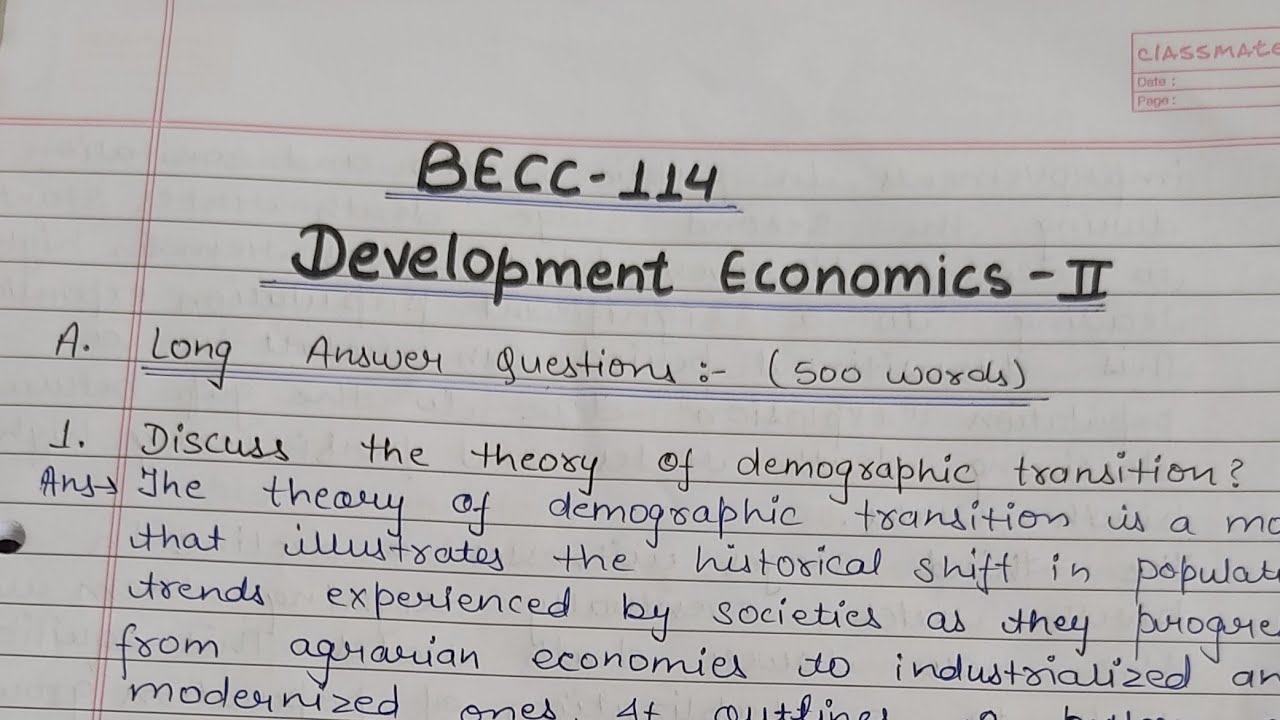 CLASSMATE
Date :
Page :
BECC-114
Development Economics - II
A. Long Answer Questions :- (500 words)
1. Discuss the theory of demographic transition?
Ans→ The theory of demographic transition is a
that illustrates the historical shift in
trends experienced by societies as they
from agrarian economies to industrialized
modernized ones. It outlines a